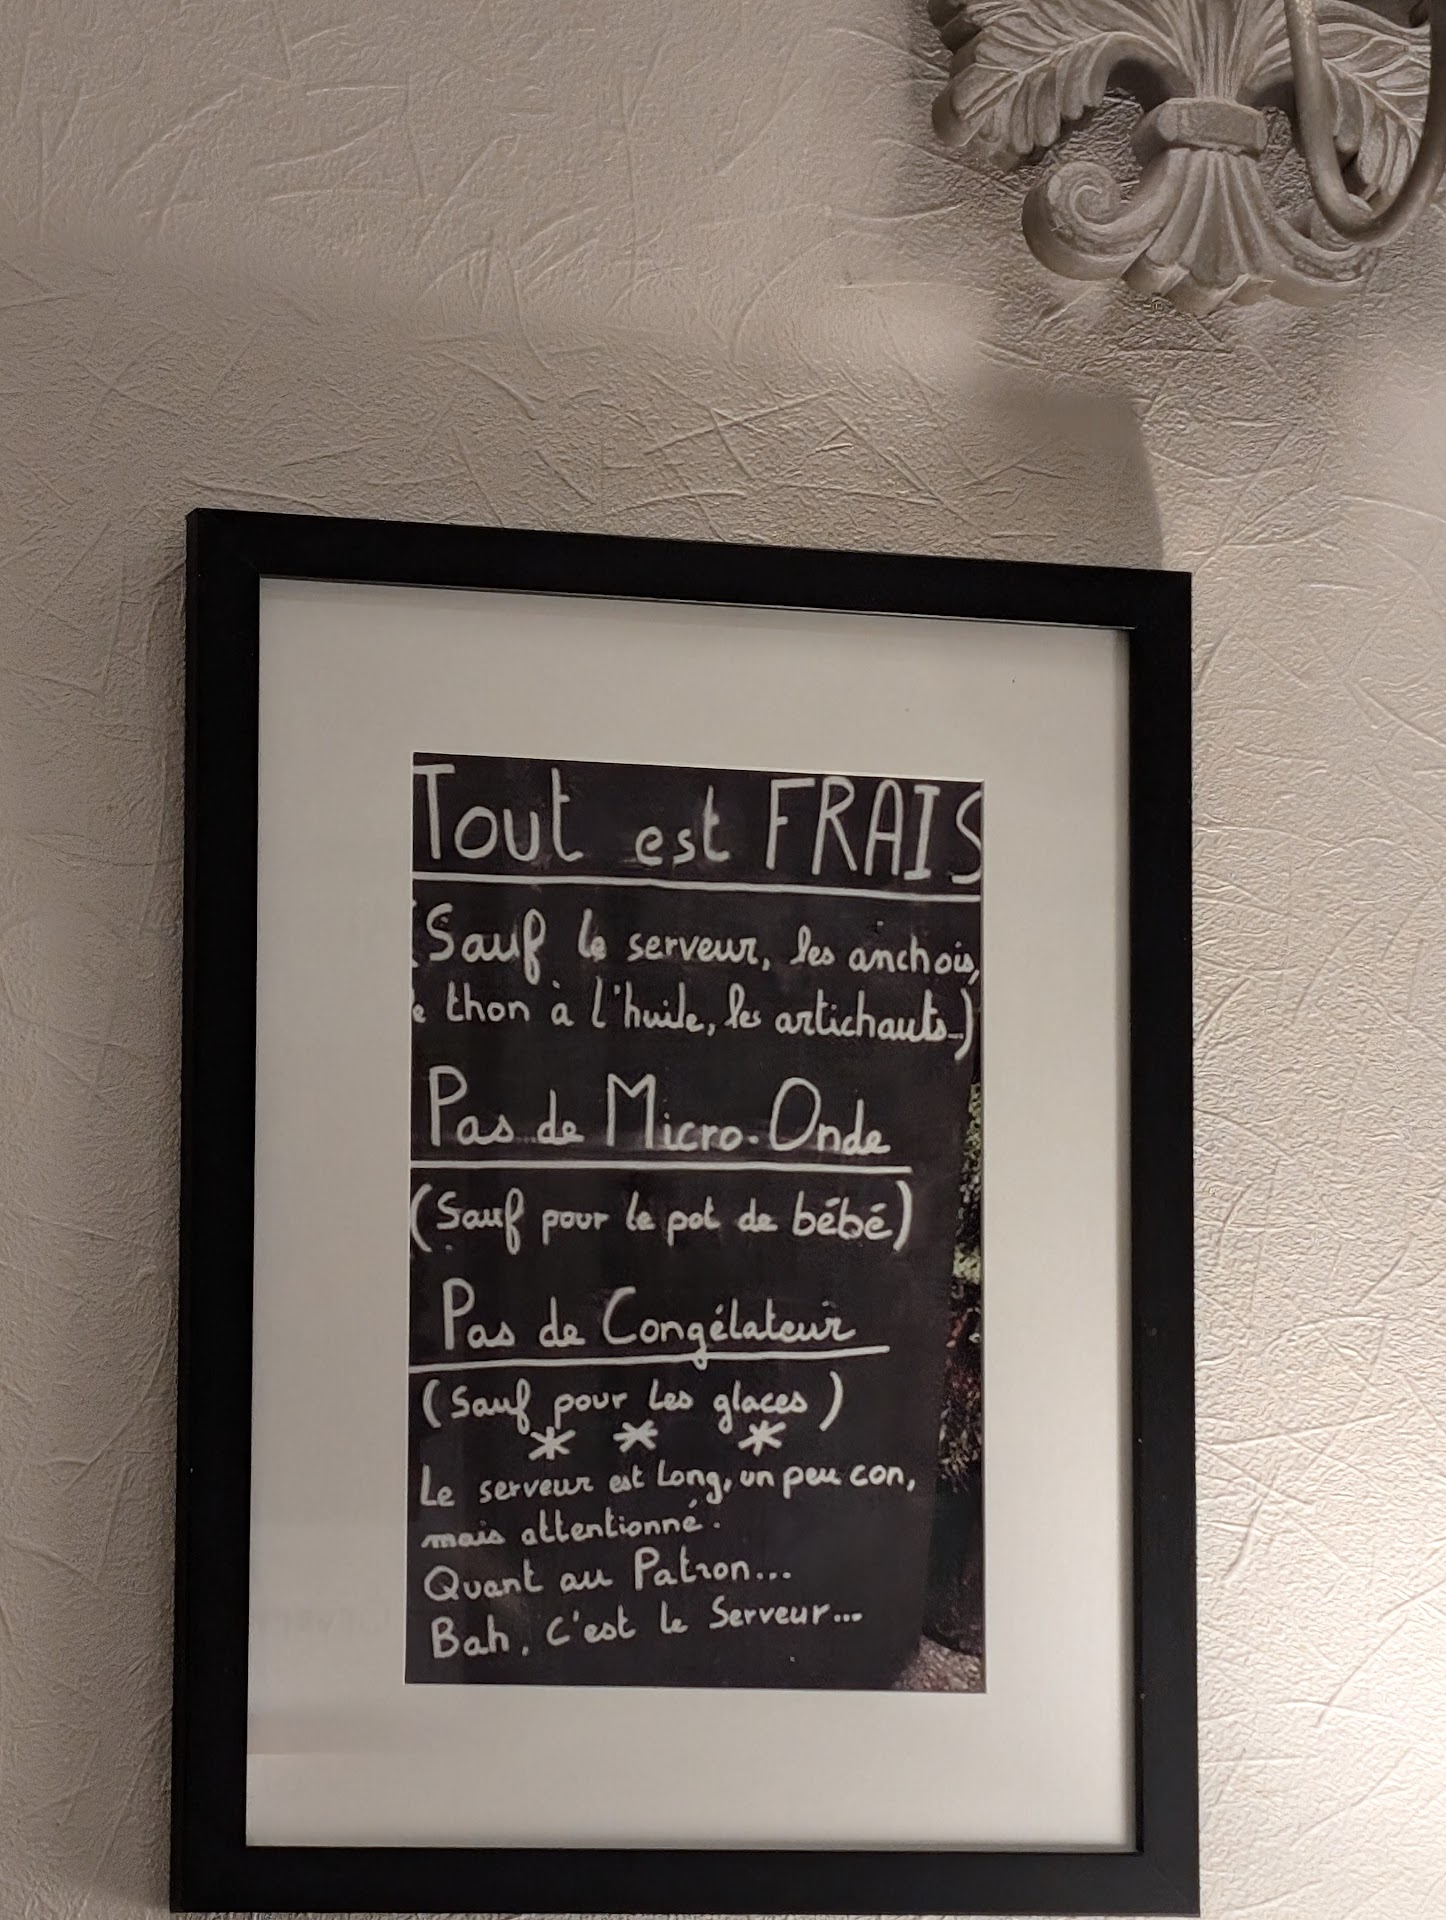 Tout est FRAIS
(Sauf le serveur, les anchois,
e thon à l'huile, les artichauts...)
Pas de Micro-Onde
(Sauf pour le pot de bébé)
Pas de Congélateur
(Sauf pour les glaces)
* * *
Le serveur est Long, un peu con,
mais attentionné.
Quant au Patron...
Bah, c'est le Serveur...